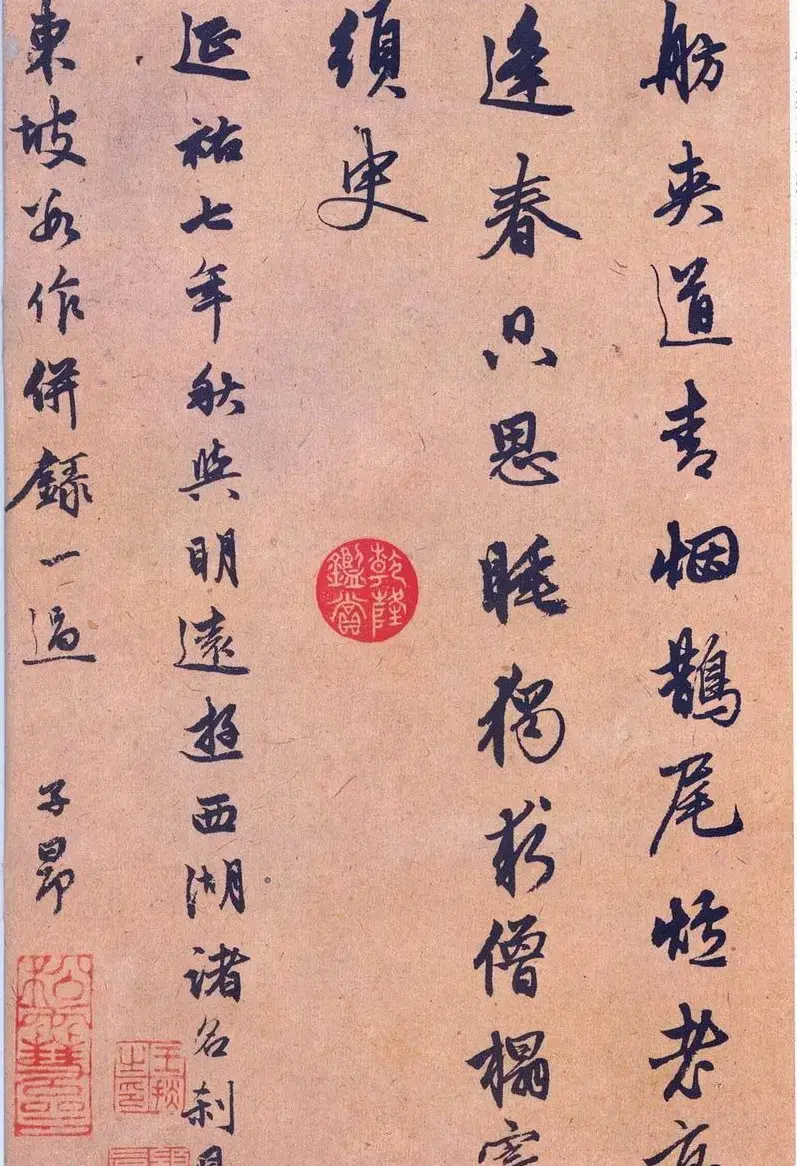 舫夾道青烟鵲尾爐老
逢春只思睡獨求僧榻寄
須臾
延祐七年秋與明遠遊西湖諸名刹見
東坡數作併錄一過
子昂
乾隆鑑賞
松雪齋